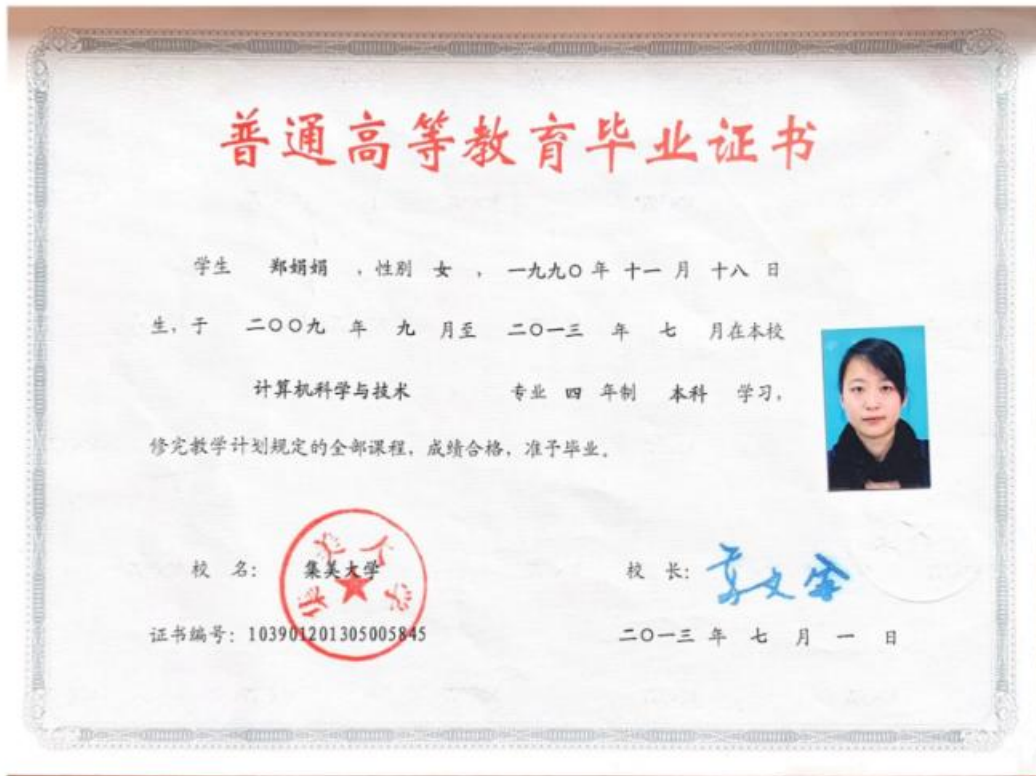 普通高等教育毕业证书
学生 郑娟娟 ,性别 女 , 一九九〇 年 十一 月 十八 日
生,于 二〇〇九 年 九 月至 二〇一三 年 七 月在本校
计算机科学与技术 专业 四 年制 本科 学习,
修完教学计划规定的全部课程,成绩合格,准予毕业。
校 名: 集美大学
集美大学
校 长:
证书编号:103901201305005845
二〇一三 年 七 月 一 日